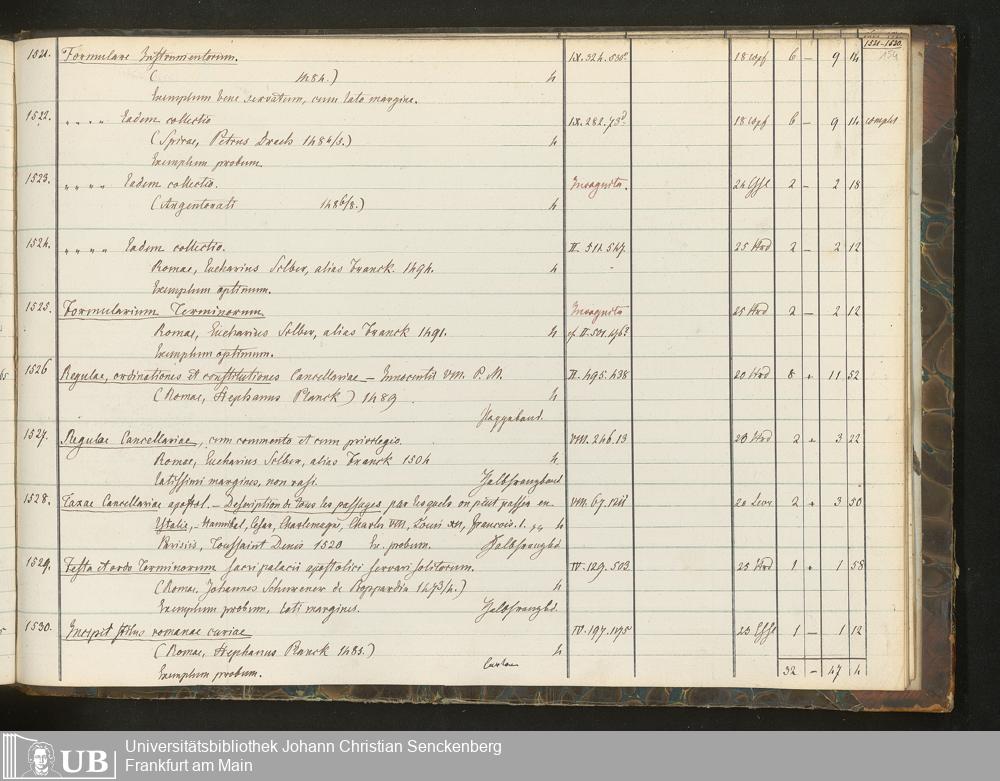 1521-1530.
154
1521. Formulare Instrumentorum. IX. 324. 535ᵃ 18 cspf 6 – 9 14
( 1484.) 4
Exemplum bene servatum, cum lato margine.
1522. „ „ „ „ Eadem collectio IX. 282. 73ᵈ 18 cspf 6 – 9 14 complet
(Spirae, Petrus Drach 1484/5.) 4
Exemplum probum.
1523. „ „ „ „ Eadem collectio. Incognita. 2 – 2 18
(Argentorati 1486/8.) 4
1524. „ „ „ „ Eadem collectio. II. 511. 547. 25 Hrd 2 – 2 12
Romae, Eucharius Silber, alias Franck 1494. 4
Exemplum optimum.
1525. Formularium Terminorum Incognita 25 Hrd 2 – 2 12
Romae, Eucharius Silber, alias Franck 1491. 4 cf. II. 501. 496ᵃ
Exemplum optimum.
1526 Regulae, ordinationes et constitutiones Cancellariae – Innocentii VIII. P. M. II. 495. 438 20 Hrd 8 + 11 52
(Romae, Stephanus Planck) 1489 . 4
Pappaband.
1527. Regulae Cancellariae, cum commento et cum privilegio. VIII. 246. 13 23 Hrd 2 + 3 22
Romae, Eucharius Silber, alias Franck 1504 4
latissimi margines, non rasi. Halbfranzband
1528. Taxae Cancellariae apostol. – Description de tous les passages par lesquels on peut passer en VIII. 67. 2 + 3 50
Ytalie, – Hannibel, César, Charlemagne, Charles VIII, Louis XII, Francois. I. 4
Parisiis, Toussaint Denis 1520 Ex. probum. Halbfranzbd.
1529. Festa et ordo Terminorum sacri palacii apostolici servari solitorum. IV. 129. 503 25 Hrd 1 + 1 58
(Romae, Johannes Schurener de Boppardia 1473/4.) 4
Exemplum probum, lati margines. Halbfranzbd.
1530. Incipit stilus romanae curiae IV. 197. 1195 1 – 1 12
(Romae, Stephanus Planck 1485.) 4
Exemplum probum.
32 – 47 4
UB
Universitätsbibliothek Johann Christian Senckenberg
Frankfurt am Main